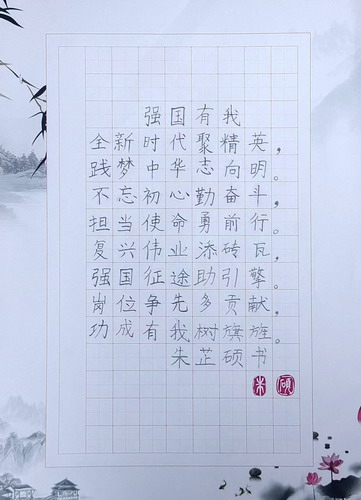 强国有我
全新时代聚精英，
践梦中华志向明。
不忘初心勤奋斗，
担当使命勇前行。
复兴伟业添砖瓦，
强国征途助引擎。
岗位争先多贡献，
功成有我树旗旌。
朱芷硕书
朱 硕